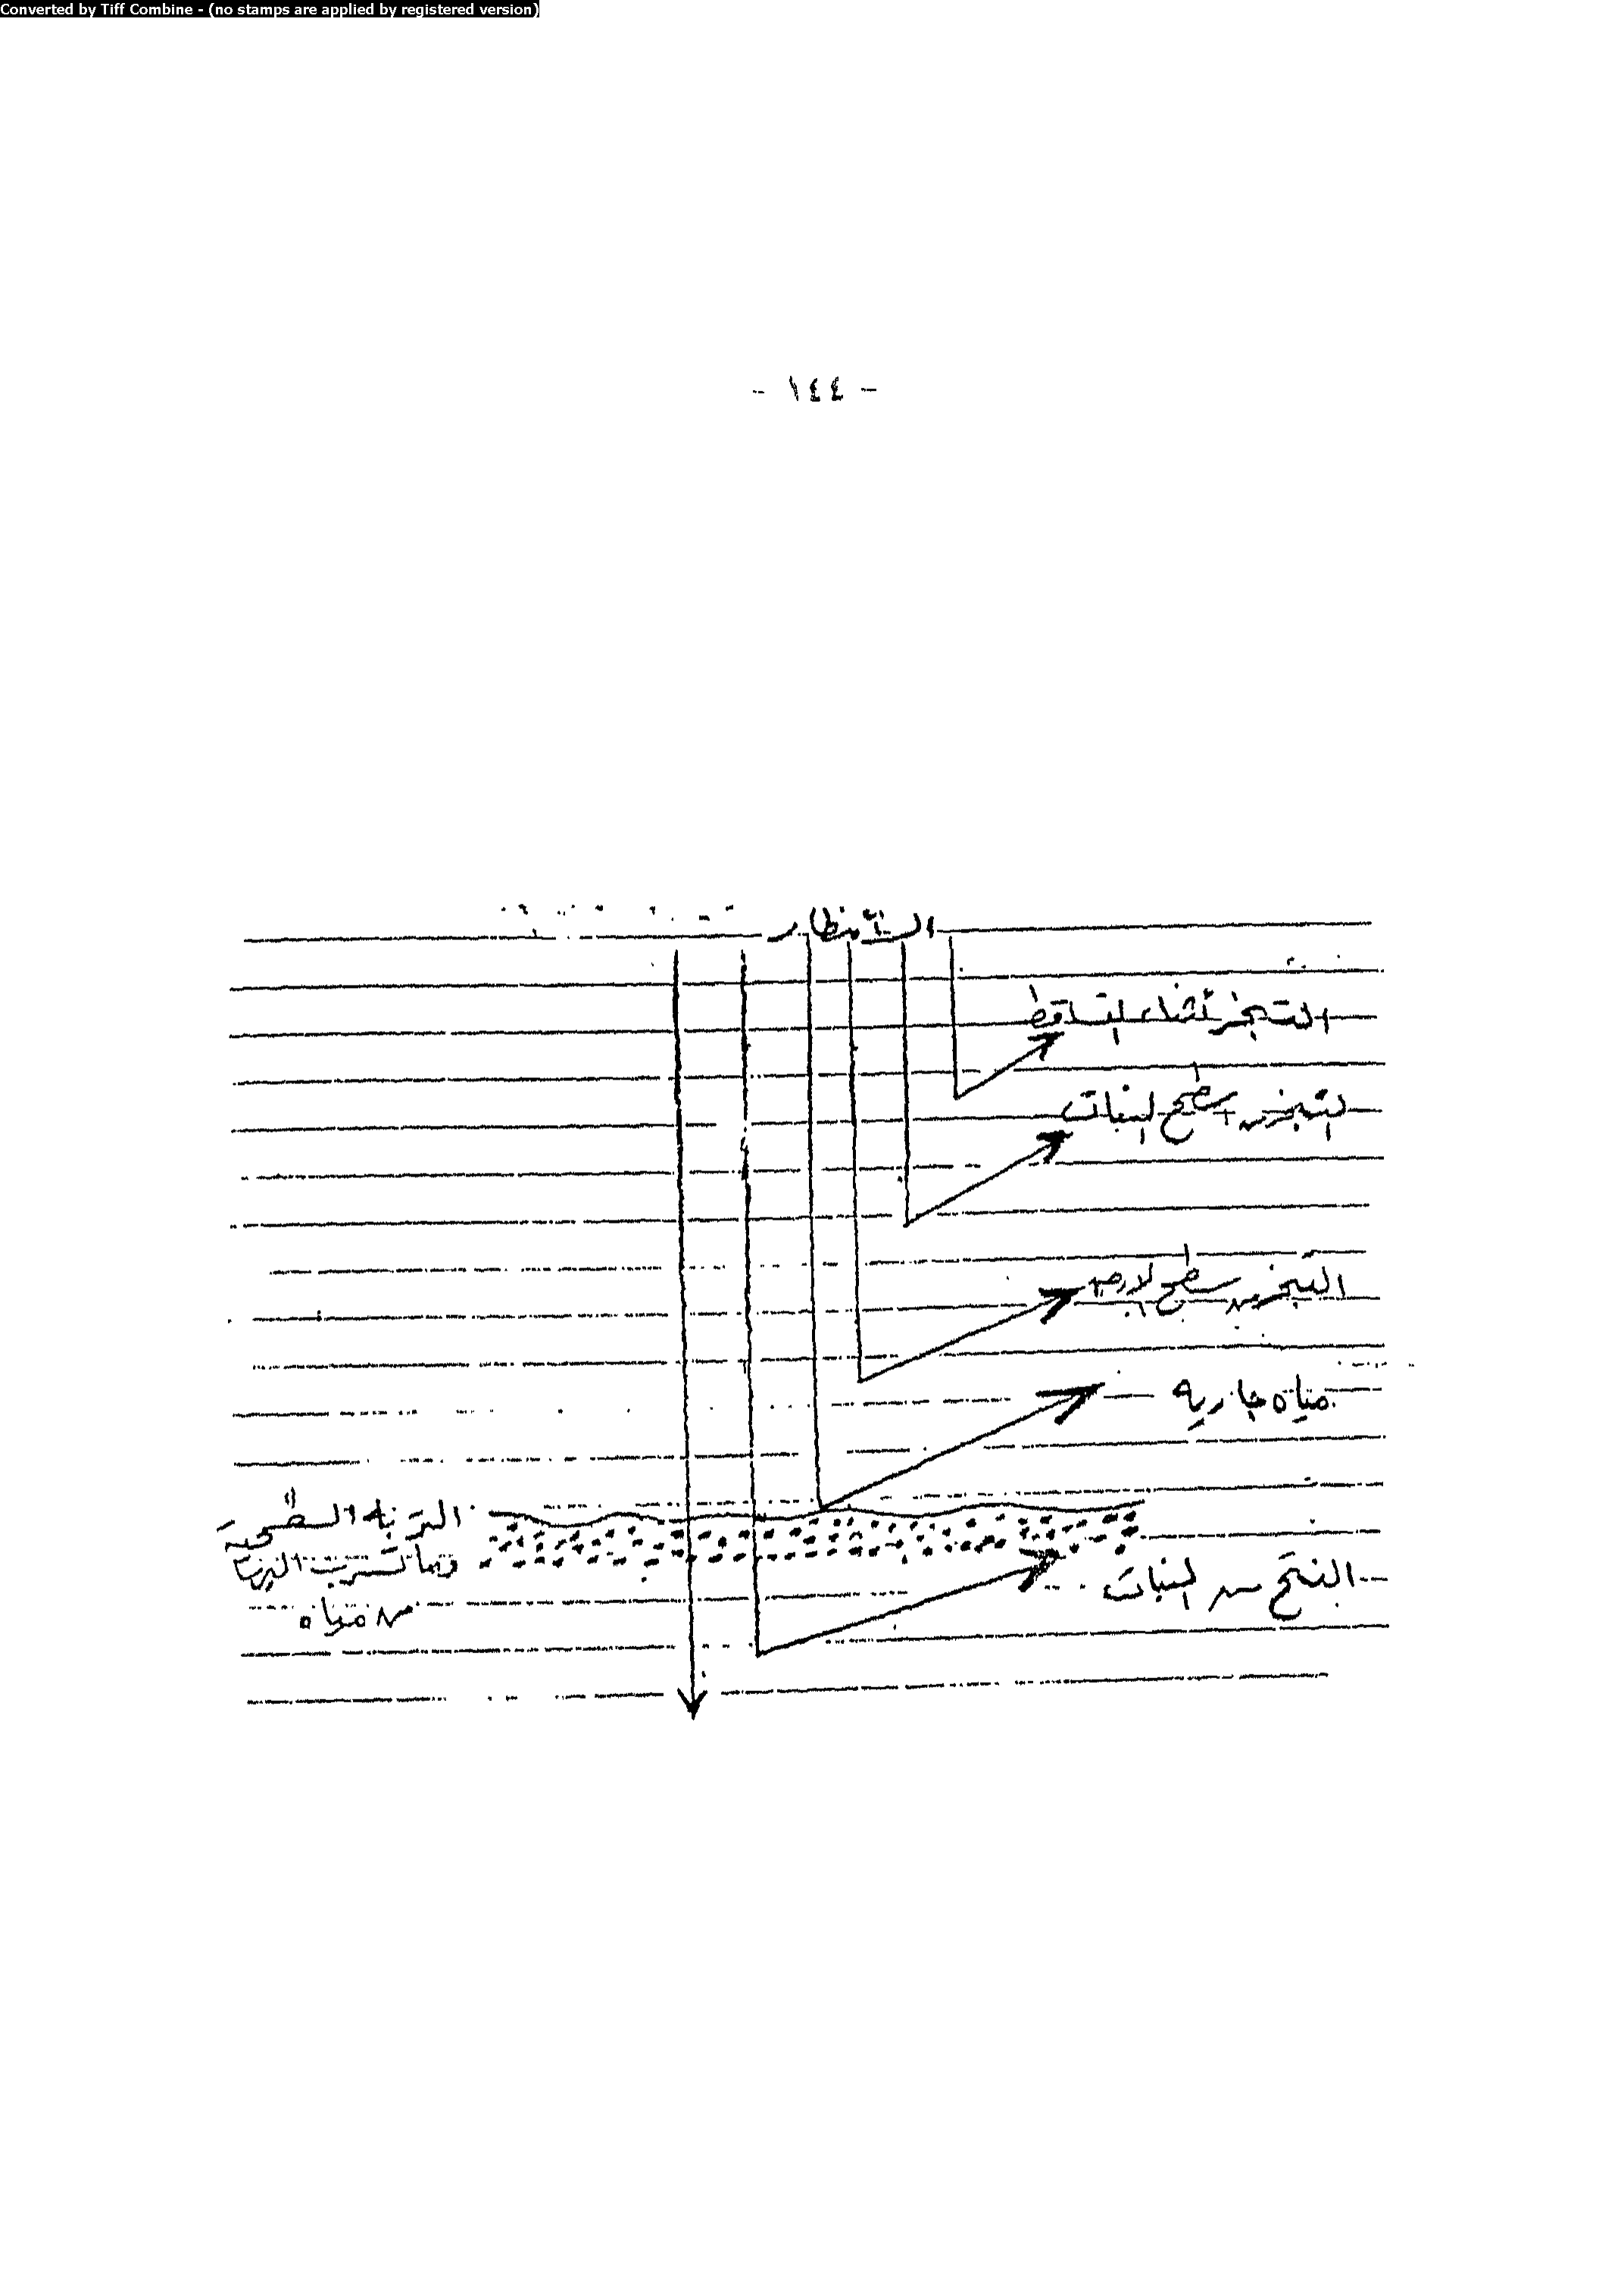 Converted by Tiff Combine - (no stamps are applied by registered version)
- ١٤٤ -
التبخر أثناء التساقط
التبخر من سطح النبات
التبخر من سطح الارض
مياه جاريه
التربه السطحية
وما تسرب اليها
من مياه
النتح من النبات